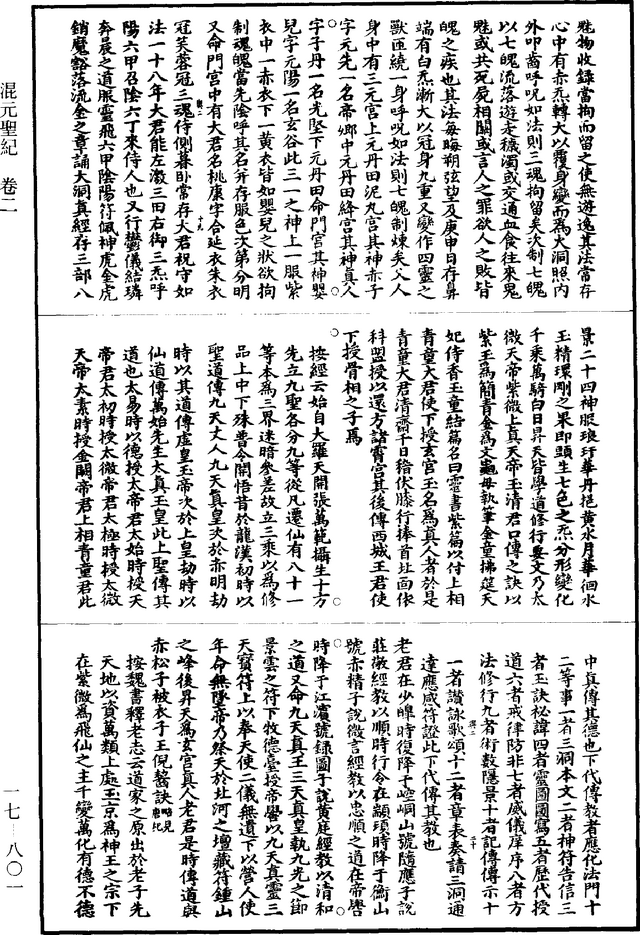 混元聖紀　卷二
一七—八〇一
魅物收録當拘而留之使無遊逸其法當存
心中有赤炁轉大以覆身變而爲火洞照内
外叩齒呼呪如法則三魂拘留矣次制七魄
以七魄流落遊走穢濁或交通血食往來鬼
魅或共死屍相關或言人之罪欲人之敗皆
魄之疾也其法每晦朔弦望及庚申日存鼻
端有白炁漸大以冠身九重又變作四靈之
獸匝繞一身呼呪如法則七魄制煉矣又人
身中有三元宫上元丹田泥丸宫其神赤子
字元先一名帝鄉中元丹田絳宫其神真人
字子丹一名光堅下元丹田命門宫其神嬰
兒字元陽一名玄谷此三一之神上一服紫
衣中一赤衣下一黄衣皆如嬰兒之狀欲拘
制魂魄當先陰呼其名并存服色次第分明
又命門宫中有大君名桃康字合延衣朱衣
冠芙蓉冠三魂侍側暮卧常存大君祝守如
法一十八年大君能左激三田右御三炁呼
陽六甲召陰六丁來侍人也又行鬱儀結璘
奔晨之道服靈飛六甲陰陽符佩神虎金虎
銷魔豁落流金之章誦大洞真經存三部八
景二十四神服琅玕華丹挹黄水月華徊水
玉精環剛之果即頭生七色之炁分形變化
千乘萬騎白日昇天皆學道修行要文乃太
微天帝紫微上真天帝玉清君口傳之訣以
紫玉爲簡青金爲文龜母執筆金童拂筵天
妃侍香玉童結篇名曰靈書紫篇以付上相
青童大君使下授玄宫玉名爲真人者於是
青童大君清齋千日稽伏膝行捧首北面依
科盟授以還方諸霄宫其後傳西城王君使
下授骨相之子焉
按經云始自大羅天開張萬範攝生十方
先立九聖各分九等從凡遷仙有八十一
等本爲三界迷暗參差故立三乘以爲修
品上中下殊普令開悟昔於龍漢初時以
聖道傳九天丈人九天真皇次於赤明劫
時以其道傳虛皇玉帝次於上皇劫時以
仙道傳萬始先生太真王皇此上聖傳其
道也太易時以德授太帝君太始時授天
帝君太初時授太微帝君太極時授太微
天帝太素時授金闕帝君上相青童君此
中真傳其德也下代傳教者應化法門十
二等事一者三洞本文二者神符告信三
者玉訣秘諱四者靈圖圖寫五者歷代授
道六者戒律防非七者威儀庠序八者方
法修行九者術數隱景十者記傳傳示十
一者讃詠歌頌十二者章表奏請三洞通
達應感符證此下代傳其教也
老君在少皥時復降于崆峒山號隨應子説
莊敬經教以順時行令在顓頊時降于衡山
號赤精子説微言經教以忠順之道在帝嚳
時降于江濱號録圖子説黄庭經教以清和
之道又命九天真王三天真皇執九光之節
景雲之符下牧德臺授帝嚳以九天真靈三
天寶符上以奉天使二儀無遺下以營人使
年命無墜帝乃祭天於北河之壇藏符鍾山
之峰後昇天爲玄宫真人老君是時傳道與
赤松子被衣子王倪齧訣
按魏書釋老志云道家之原出於老子先
天地以資萬類上處玉京爲神王之宗下
在紫微爲飛仙之主千變萬化有德不德